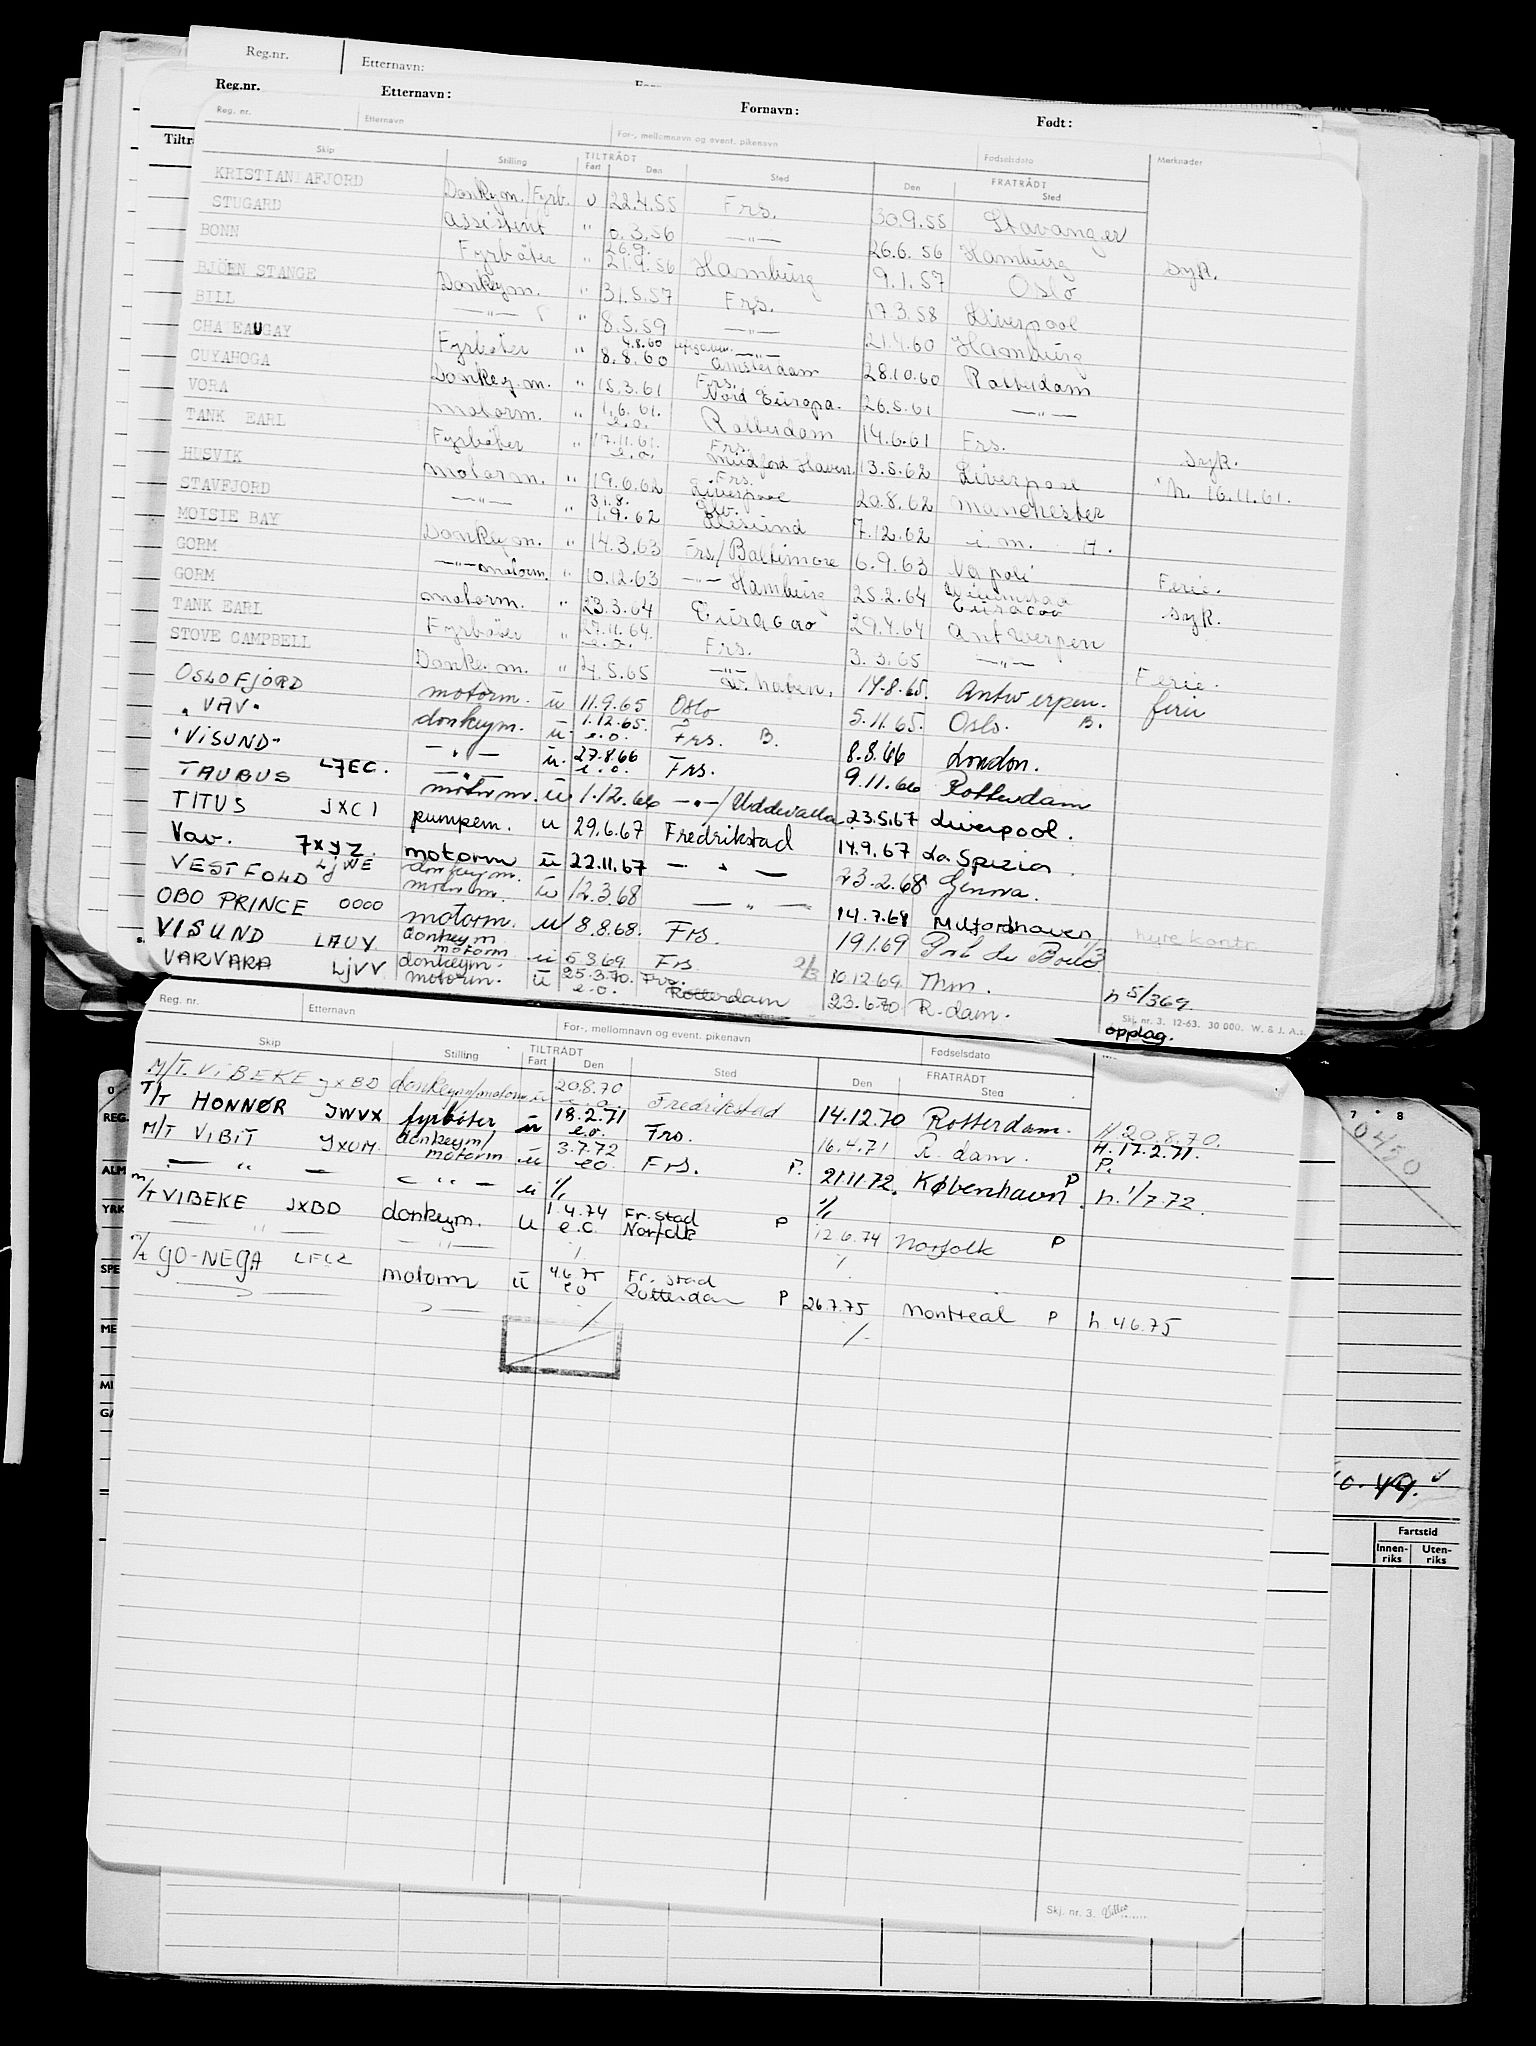 Reg.nr. Etternavn:
Reg.nr. Etternavn: Fornavn: Født:
Reg. nr. Etternavn For-, mellomnavn og event. pikenavn Fødselsdato Merknader
Skip Stilling TILTRÅDT Fart Den Sted FRATRÅDT Den Sted
KRISTIANIAFJORD Donkeym./Fyrb. u 22.4.55 Frs. 30.9.55 Stavanger
STUGARD assistent " 6.3.56 —"— 26.6.56 Hamburg syk.
BONN Fyrbøter " 26.9. 21.9.56 Hamburg 9.1.57 Oslo
BJÖEN STANGE Donkeym. " 31.5.57 Frs. 17.3.58 Liverpool
BILL —"— " 8.5.59 —"— 21.4.60 Hamburg
CHA EAUGAY Fyrbøter " 4.8.60 8.8.60 —"— Amsterdam 28.10.60 Rotterdam
CUYAHOGA Donkey.m. " 15.3.61 Frs. Nord Europa. 26.5.61 —"—
VORA motorm. " 1.6.61. e.o. Rotterdam 14.6.61 Frs. syk.
TANK EARL Fyrbøter " 17.11.61. e.o. Frs. Haven. 13.5.62 Liverpool h. 16.11.61.
HUSVIK motorm. " 19.6.62 Frs. Liverpool 20.8.62 Manchester
STAVFJORD —"— " 31.8. 1.9.62 Ålesund 7.12.62 i.m. H.
MOISIE BAY Donkeym. " 14.3.63 Frs/Baltimore 6.9.63 Napoli Ferie.
GORM —"—motorm. " 10.12.63 —"— Hamburg 25.2.64 Curacao syk.
GORM motorm. " 23.3.64 Curacao 29.4.64 Antwerpen
TANK EARL Fyrbøter " 27.11.64. e.o. Frs. 3.3.65 —"— Ferie.
STOVE CAMPBELL Donke.m. " 4.5.65 —"— 14.8.65. Antwerpen. ferie
OSLOFJORD motorm. u 11.9.65 Oslo 5.11.65. Oslo. B.
"VAV" donkeym. u. 1.12.65. e.o. Frs. B. 8.8.66 London.
"VISUND" LJEC. —"— u. 27.8.66 e.o. Frs. 9.11.66 Rotterdam
TAURUS —"— motorm. u 1.12.66 —"—/Uddevalla 23.5.67 Liverpool.
TITUS JXCI pumpem. u 29.6.67 Fredrikstad 14.9.67 La Spezia.
Vav. 7xyz motorm u 22.11.67 — " — 23.2.68 Genova.
VESTFOLD LJWE donkeym. motorm. u 12.3.68 — " — 14.7.68 Milfordhaven
OBO PRINCE 0000 motorm. u 8.8.68. Frs. 19.1.69 hyrekontr.
VISUND LAUY donkeym motorm u 5.3.69 Frs 2/3 10.12.69 Thm. h 5/369
VARVARA LJVV donkeym. motorm. u 25.3.70. e.o. Frs. Rotterdam 23.6.70 R.dam. opplag.
Skj. nr. 3. 12-63. 30 000. W. & J. A.s.
Reg. nr. Etternavn For-, mellomnavn og event. pikenavn Fødselsdato
Skip Stilling TILTRÅDT Fart Den Sted FRATRÅDT Den Sted
M/T. ViBEKE JXBD donkeym/motorm u 20.8.70 e.o. Fredrikstad 14.12.70 Rotterdam. H 20.8.70.
T/T HONNØR JWVX fyrbøter u 18.2.71 e.o. Frs. 16.4.71 R. dam. H. 17.2.71. P.
M/T ViBiT JXOM. donkeym/ motorm u 3.7.72 eo Frs. P. 21.11.72. København P. h. 1/7.72.
— " — — " — u 1/1 1/1
M/T VIBEKE JXBD donkeym. u 1.4.74 e.o. Fr.stad Norfolk P 12.6.74 Norfolk P
— " — — " — / /
M/T GO-NEGA LFCZ motorm u 4.6.75 eo Fr. stad Rotterdam P 26.7.75 Montreal P h 4.6.75
Skj. nr. 3.
0450
10.49.
Fartstid
Innen-riks Uten-riks
REG.
ALM
YRK
SPE
ME
MI